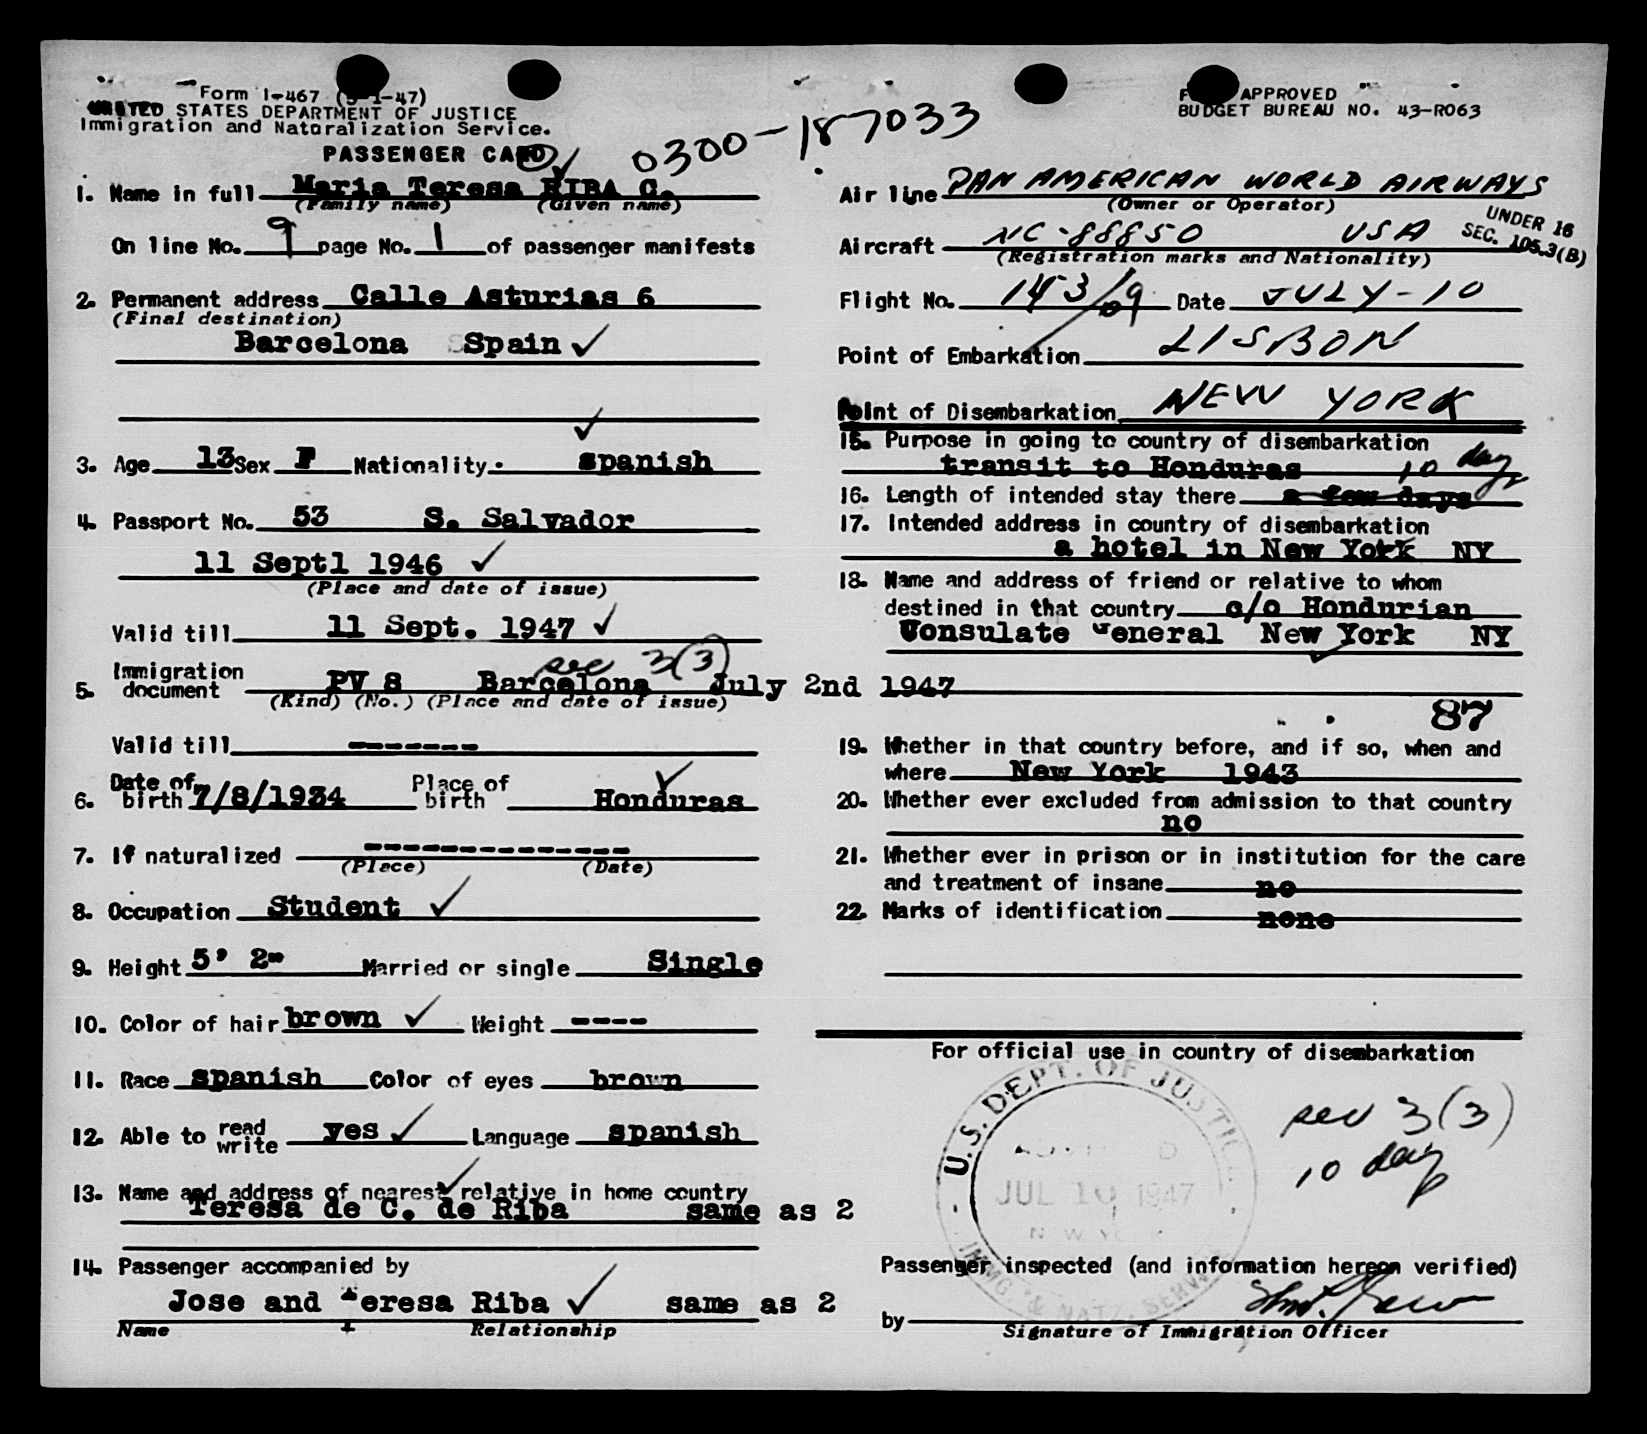 Form I-467 (5-1-47)
UNITED STATES DEPARTMENT OF JUSTICE
Immigration and Naturalization Service.
PASSENGER CARD
0300-187033
APPROVED
BUDGET BUREAU NO. 43-R063
1. Name in full Maria Teresa RIBA C.
(Family name) (Given name)
On line No. 9 page No. 1 of passenger manifests
2. Permanent address Calle Asturias 6
(Final destination)
Barcelona Spain ✓
3. Age 13 Sex F Nationality. spanish
4. Passport No. 53 S. Salvador
11 Septl 1946 ✓
(Place and date of issue)
Valid till 11 Sept. 1947 ✓
sec 3(3)
5. Immigration document PV 8 Barcelona July 2nd 1947
(Kind) (No.) (Place and date of issue)
Valid till -------
6. Date of birth 7/8/1934 Place of birth Honduras
7. If naturalized --------------
(Place) (Date)
8. Occupation Student ✓
9. Height 5' 2" Married or single Single
10. Color of hair brown ✓ Weight ----
11. Race spanish Color of eyes brown
12. Able to read write yes ✓ Language spanish
13. Name and address of nearest relative in home country
Teresa de C. de Riba same as 2
14. Passenger accompanied by
Jose and Teresa Riba ✓ same as 2
Name + Relationship
Air line PAN AMERICAN WORLD AIRWAYS
(Owner or Operator)
UNDER 16
SEC. 105.3(B)
Aircraft NC-88850 USA
(Registration marks and Nationality)
Flight No. 143/09 Date JULY-10
Point of Embarkation LISBON
Point of Disembarkation NEW YORK
15. Purpose in going to country of disembarkation
transit to Honduras 10 days
16. Length of intended stay there a few days
17. Intended address in country of disembarkation
a hotel in New York NY
18. Name and address of friend or relative to whom
destined in that country c/o Hondurian
Consulate General New York NY
87
19. Whether in that country before, and if so, when and
where New York 1943
20. Whether ever excluded from admission to that country
no
21. Whether ever in prison or in institution for the care
and treatment of insane no
22. Marks of identification none
For official use in country of disembarkation
U.S. DEPT. OF JUSTICE
JUL 10 1947
IMMG. & NATZ. SERVICE
sec 3(3)
10 days
Passenger inspected (and information hereon verified)
by
Signature of Immigration Officer